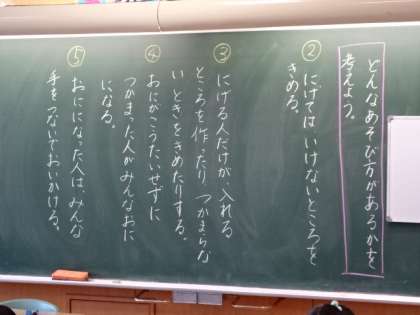 どんなあそび方があるかを
考えよう。
②
にげてはいけないところを
きめる。
③
にげる人だけが、入れる
ところを作ったり、つかまらな
いときをきめたりする。
④
おにがこうたいせずに
つかまった人がみんなおに
になる。
⑤
おにになった人は、みんな
手をつないでおいかける。